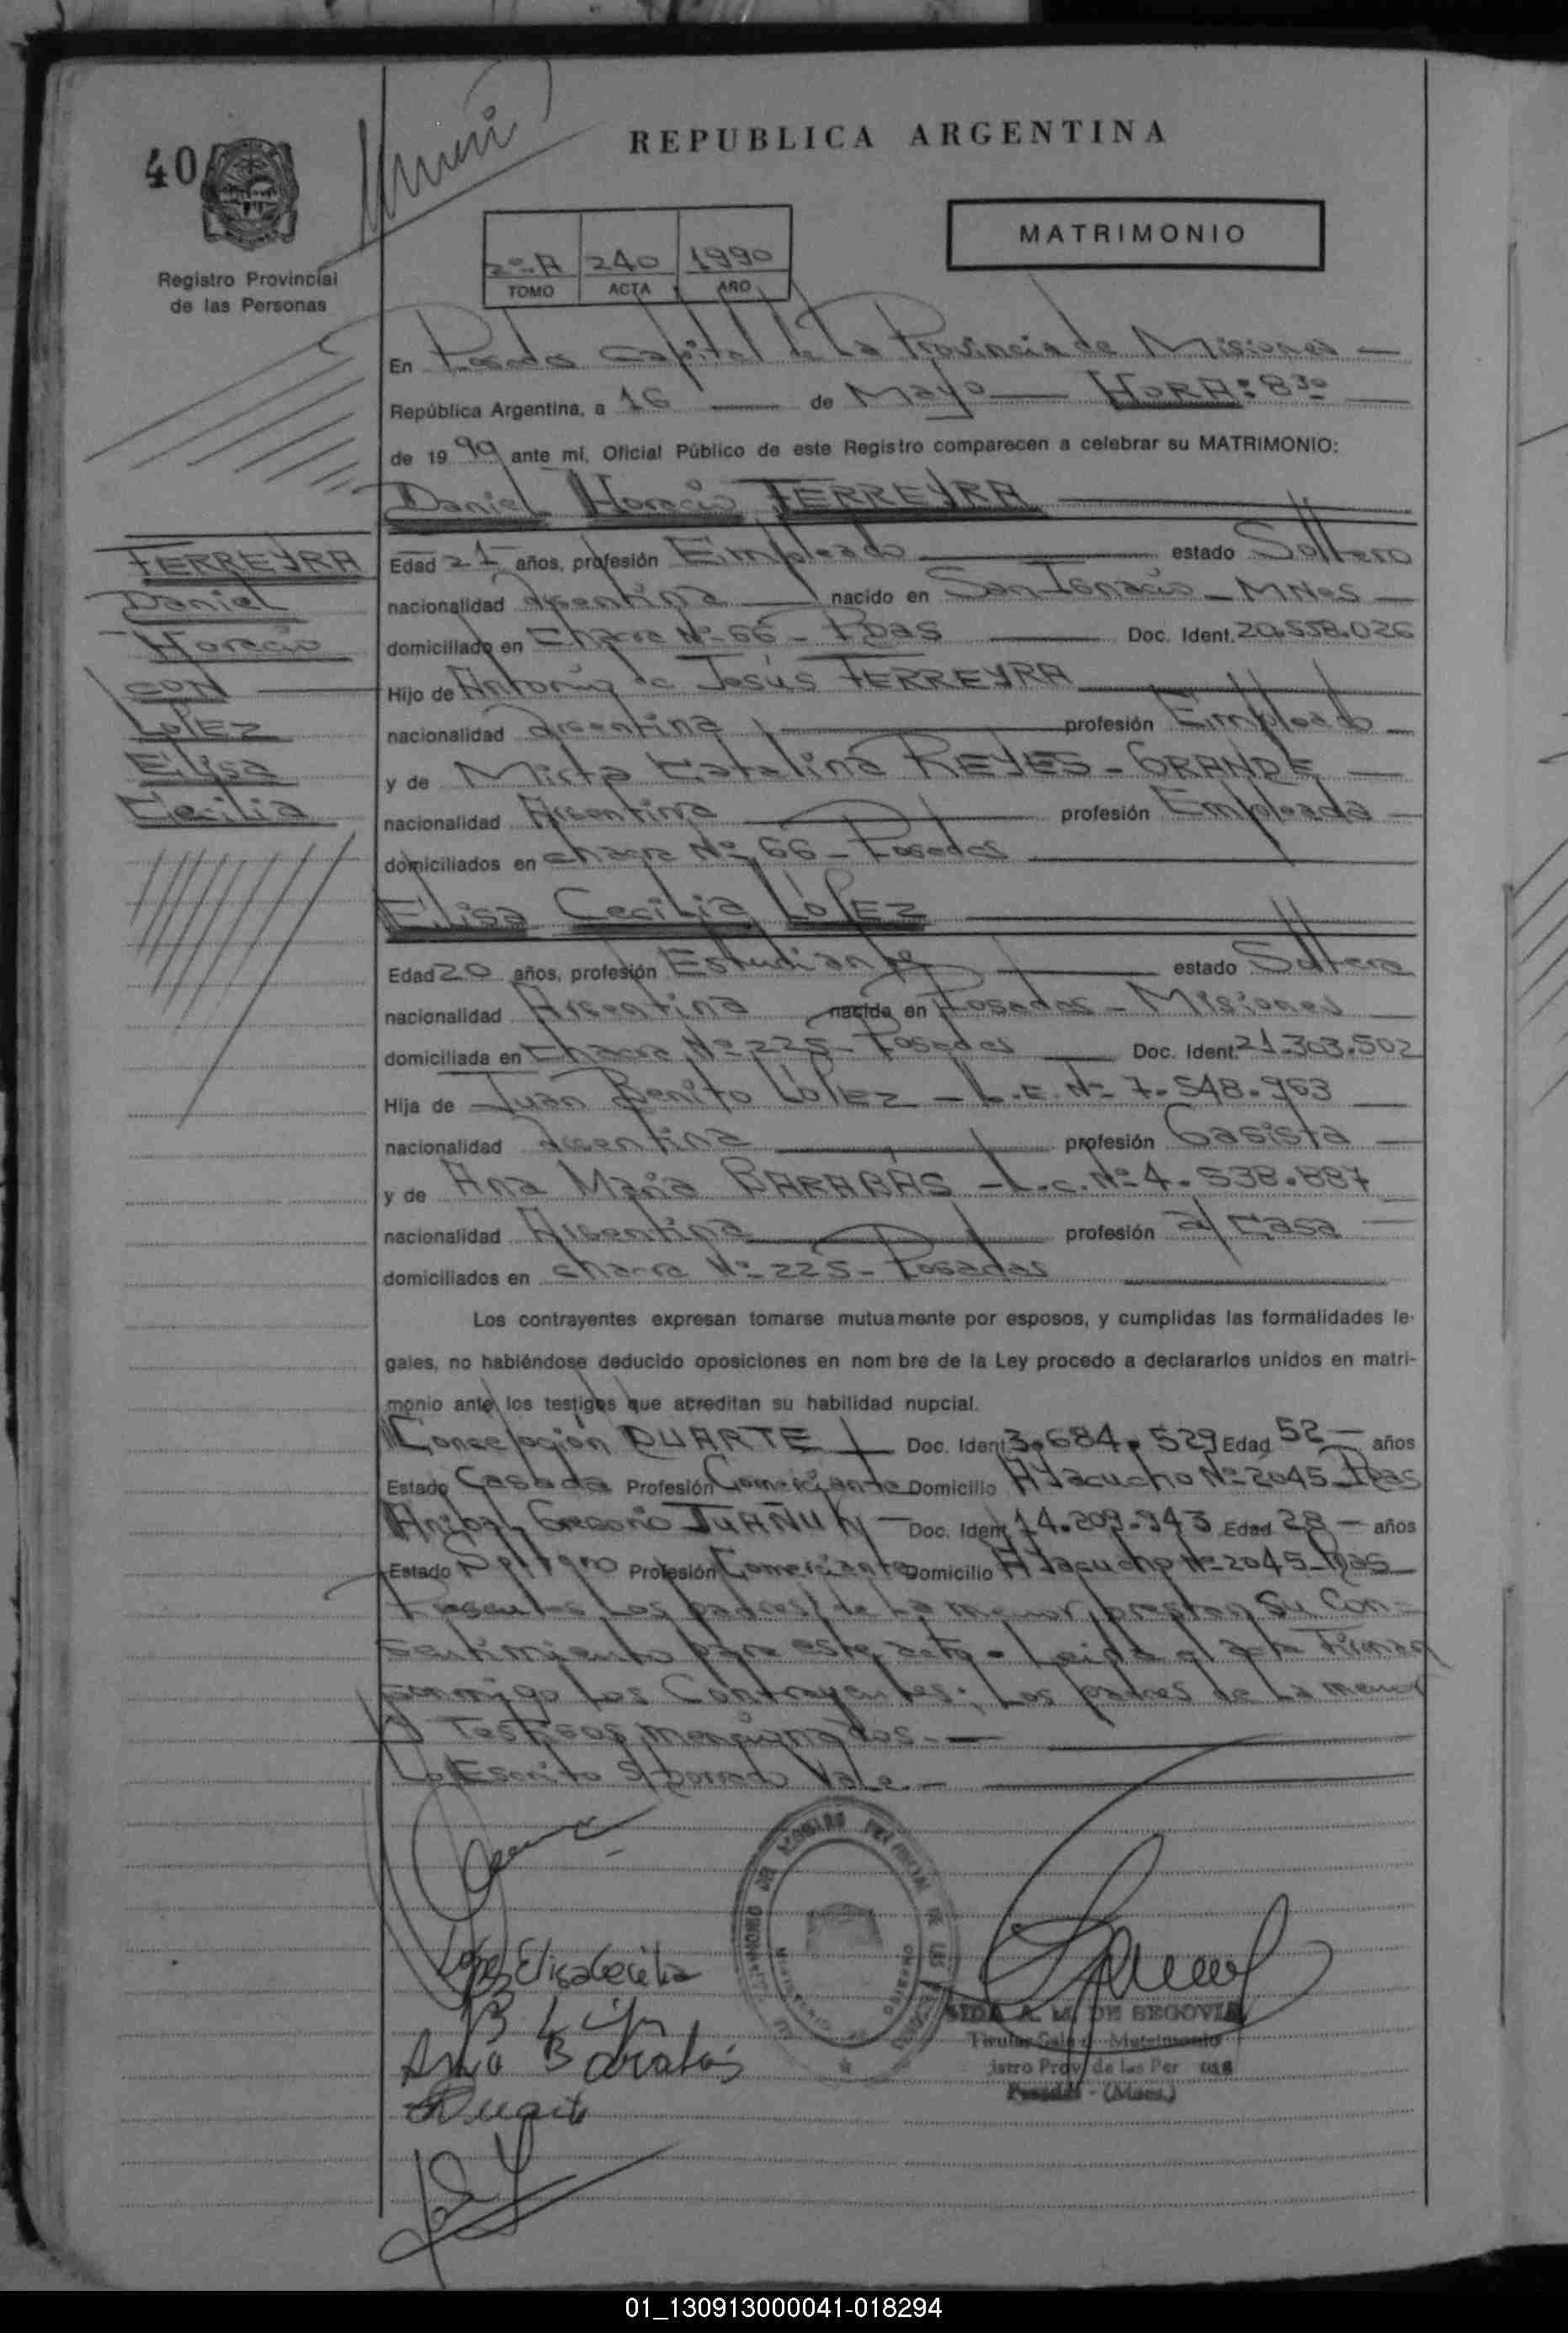 40
REPUBLICA ARGENTINA
MATRIMONIO
Registro Provincial
de las Personas
2º-A 240 1990
TOMO ACTA AÑO
En Posadas Capital de La Provincia de Misiones
República Argentina, a 16 de Mayo HORA: 8 30
de 19 90 ante mí, Oficial Público de este Registro comparecen a celebrar su MATRIMONIO:
Daniel Horacio FERREYRA
FERREYRA
Daniel
Horacio
CON
LÓPEZ
Elisa
Cecilia
Edad 21 años, profesión Empleado estado Soltero
nacionalidad Argentina nacido en San Ignacio - MNes
domiciliado en Chacra Nº 66 - Pdas Doc. Ident. 20.558.026
Hijo de Antonio de Jesús FERREYRA
nacionalidad Argentina profesión Empleado
y de Mirta Catalina REYES - GRANDE
nacionalidad Argentina profesión Empleada
domiciliados en Chacra Nº 66 - Posadas
Elisa Cecilia LÓPEZ
Edad 20 años, profesión Estudiante estado Soltera
nacionalidad Argentina nacida en Posadas - Misiones
domiciliada en Chacra Nº 225 - Posadas Doc. Ident. 21.303.502
Hija de Juan Benito LÓPEZ - L.E. Nº 7.548.963
nacionalidad Argentina profesión Gasista
y de Ana María BARABÁS - L.C. Nº 4.538.887
nacionalidad Argentina profesión a/ Casa
domiciliados en Chacra Nº 225 - Posadas
Los contrayentes expresan tomarse mutuamente por esposos, y cumplidas las formalidades le-
gales, no habiéndose deducido oposiciones en nom bre de la Ley procedo a declararlos unidos en matri-
monio ante los testigos que acreditan su habilidad nupcial.
Concepción DUARTE Doc. Ident. 3.684.529 Edad 52 años
Estado Casada Profesión Comerciante Domicilio Ayacucho Nº 2045 Pdas
Anibal Gregorio Doc. Ident. 14.209.943 Edad 28 años
Estado Soltero Profesión Comerciante Domicilio Ayacucho Nº 2045 - Pdas
Presentes Los padres de La menor, prestan Su Con-
sentimiento para este acto. Leida el acta Firman
conmigo Los Contrayentes; Los padres de La menor
y Testigos mencionados.-
Lo Escrito s/ borrado Vale.-
López Elisa Cecilia
B López
Ana Barabás
Duarte
A. M. DE SEGOVIA
Titular Sala Matrimonio
Posadas - (Mnes.)
01_130913000041-018294